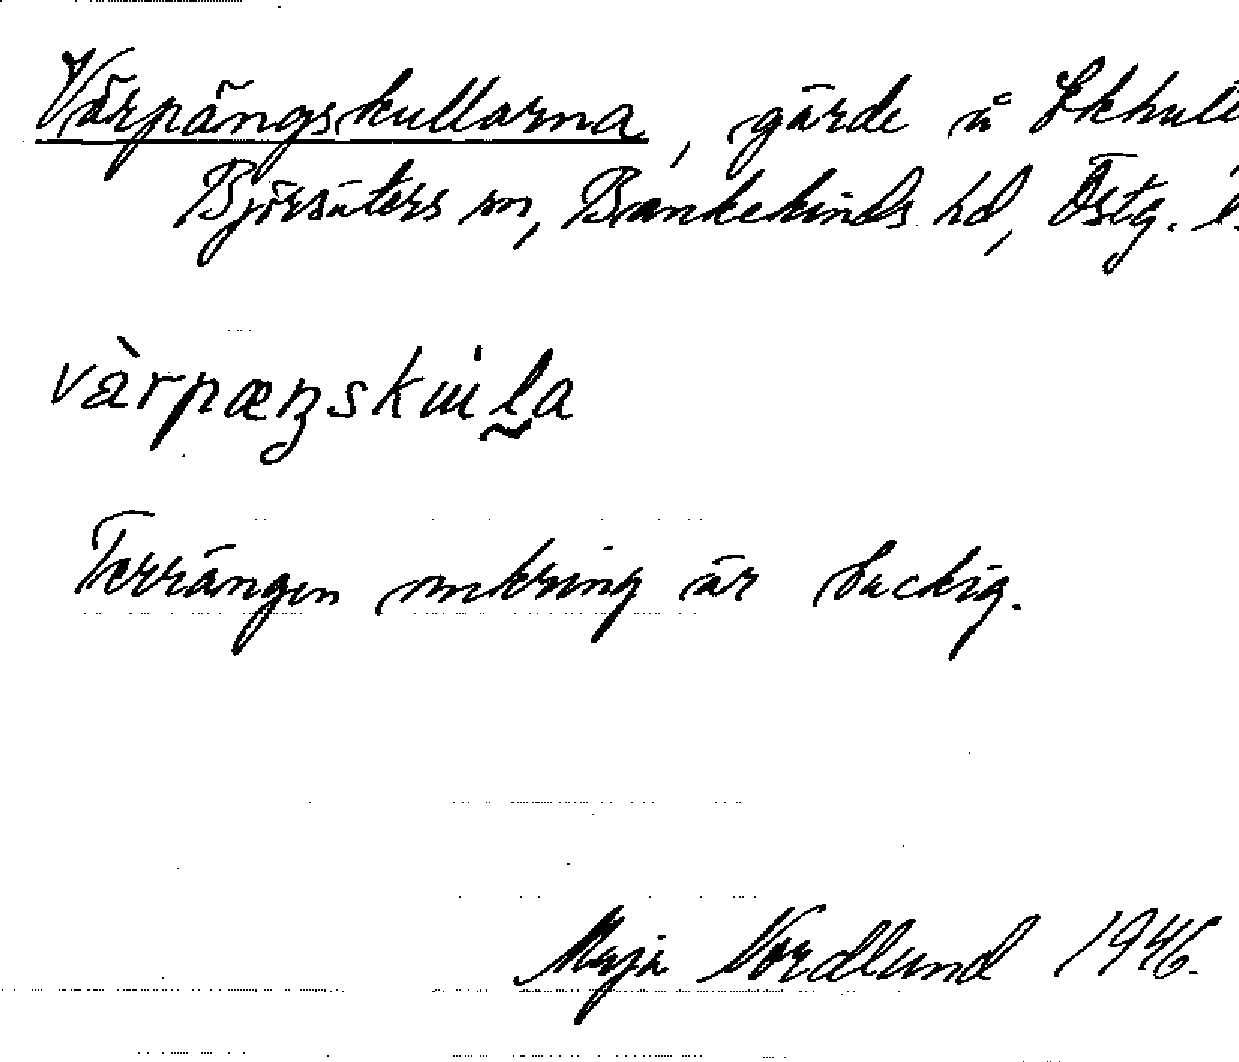 Värpängskullarna, gärde å Ekhult
Björsäters sn, Bankekinds hd, Östg. l.
vàrpæŋskuḷa
Terrängen omkring är backig.
Maja Nordlund 1946.